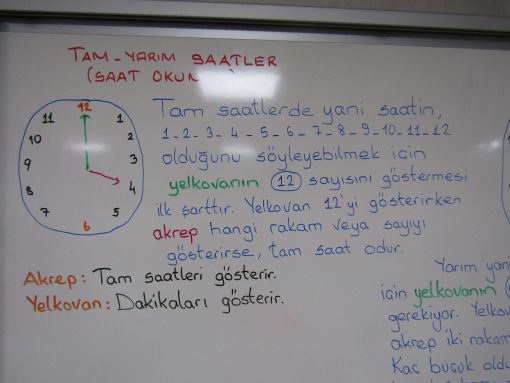 TAM-YARIM SAATLER
(SAAT OKUN
12
11 1
10 2
9 3
8 4
7 5
6
Tam saatlerde yani saatin,
1-2-3-4-5-6-7-8-9-10-11-12
olduğunu söyleyebilmek için
yelkovanın 12 sayısını göstermesi
ilk şarttır. Yelkovan 12'yi gösterirken
akrep hangi rakam veya sayıyı
gösterirse, tam saat odur.
Akrep: Tam saatleri gösterir.
Yelkovan: Dakikaları gösterir.
Yarım yani
için yelkovanın
gerekiyor. Yelkov
akrep iki rakam
Kaç buçuk oldu